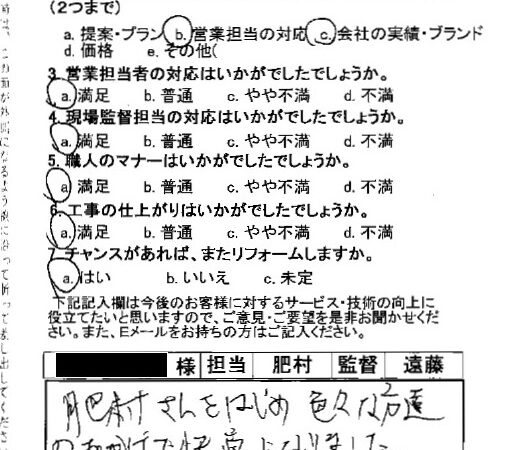 (2つまで)
a. 提案・プラン b. 営業担当の対応 c. 会社の実績・ブランド
d. 価格 e. その他(
3. 営業担当者の対応はいかがでしたでしょうか。
a. 満足 b. 普通 c. やや不満 d. 不満
4. 現場監督担当の対応はいかがでしたでしょうか。
a. 満足 b. 普通 c. やや不満 d. 不満
5. 職人のマナーはいかがでしたでしょうか。
a 満足 b. 普通 c. やや不満 d. 不満
6. 工事の仕上がりはいかがでしたでしょうか。
a. 満足 b. 普通 c. やや不満 d. 不満
7. チャンスがあれば、またリフォームしますか。
a. はい b. いいえ c. 未定
下記記入欄は今後のお客様に対するサービス・技術の向上に
役立てたいと思いますので、ご意見・ご要望を是非お聞かせくだ
さい。また、Eメールをお持ちの方はご記入ください。
様 担当 肥村 監督 遠藤
肥村さんをはじめ 色々な方達
のおかげで快適になりました